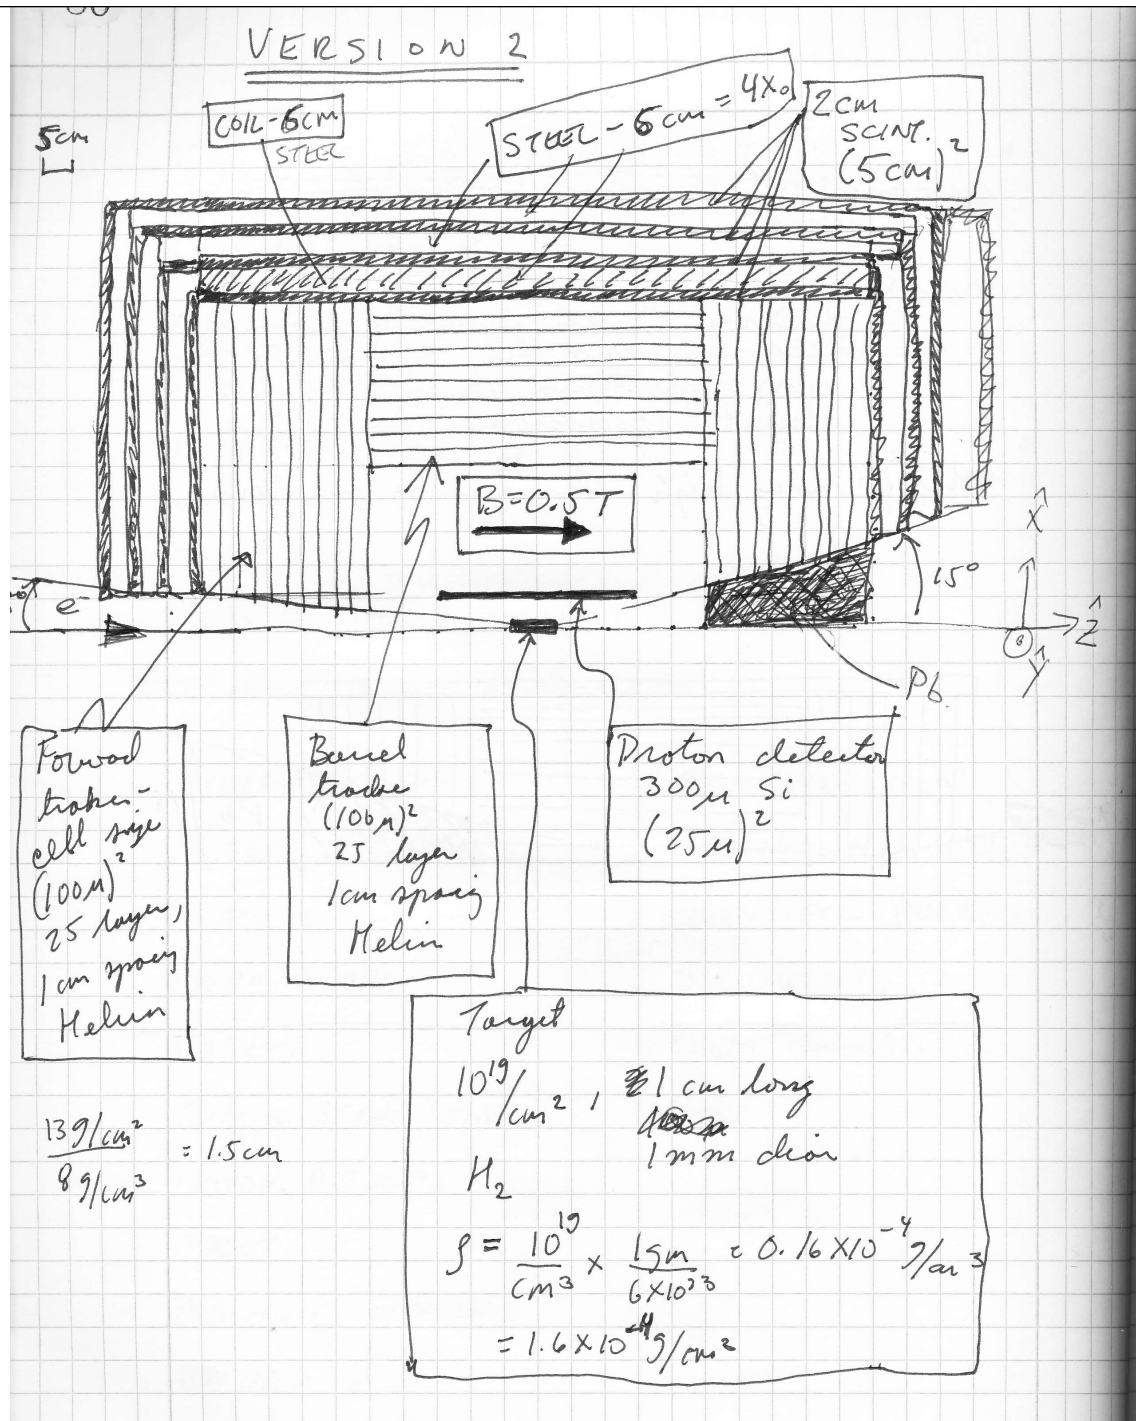 VERSION 2
5cm
COIL-6CM
STEEL
STEEL - 6cm = 4X₀
2cm
SCINT.
(5cm)²
B=0.5T
e⁻
15°
X̂
Ẑ
Ŷ
Pb
Forward
cell size
(100μ)²
25 layer,
1cm spacing
Helium
Barrel
(100μ)²
25 layer
1cm spacing
Helium
Proton detector
300μ Si
(25μ)²
Target
10¹⁹/cm², 1 cm long
1mm diam
H₂
ρ = 10¹⁹/cm³ × 1gm/6×10²³ = 0.16×10⁻⁴ g/cm³
= 1.6×10⁻⁴ g/cm²
13g/cm²/8g/cm³ = 1.5cm